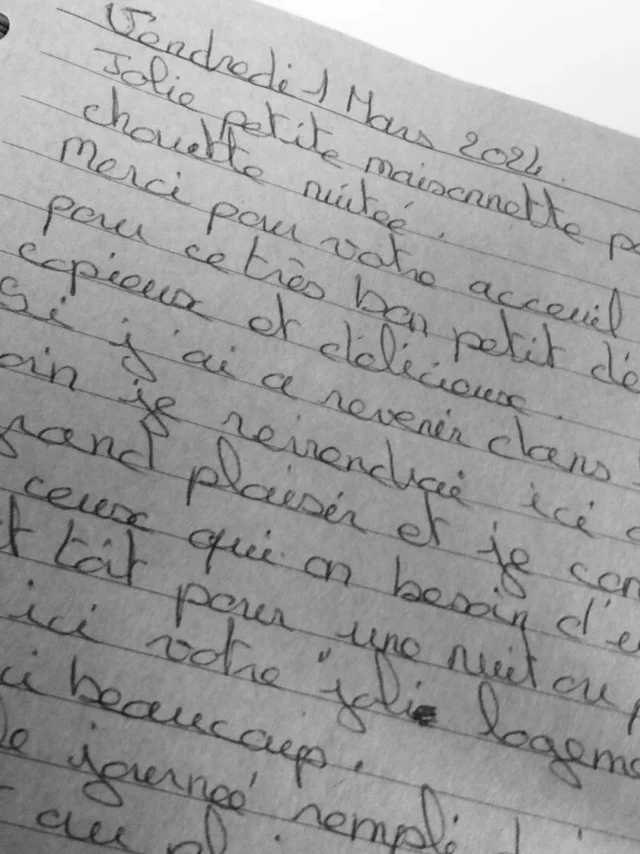 Vendredi 1 Mars 2024.
Jolie petite maisonnette
chouette nuitée.
Merci pour votre acceuil
pour ce très bon petit dé
copieux et délicieux.
Si j'ai a revenir dans
oin je reviendrai ici
grand plaisir et je con
ceux qui on besoin d'e
t toit pour une nuit ou p
ici votre "jolie logeme
ci beaucoup.
journée rempli
au